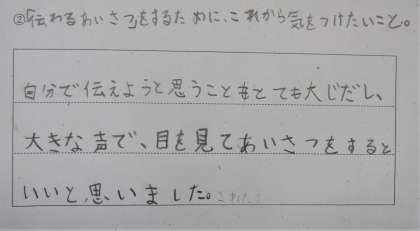 ②「伝わるあいさつ」をするために、これから気をつけたいこと。
自分で伝えようと思うこともとても大じだし、
大きな声で、目を見てあいさつをすると
いいと思いました。